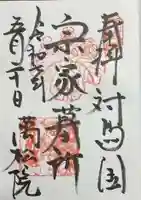 奉拝 対馬国
宗家墓所
萬松院
令和六年
五月二十日